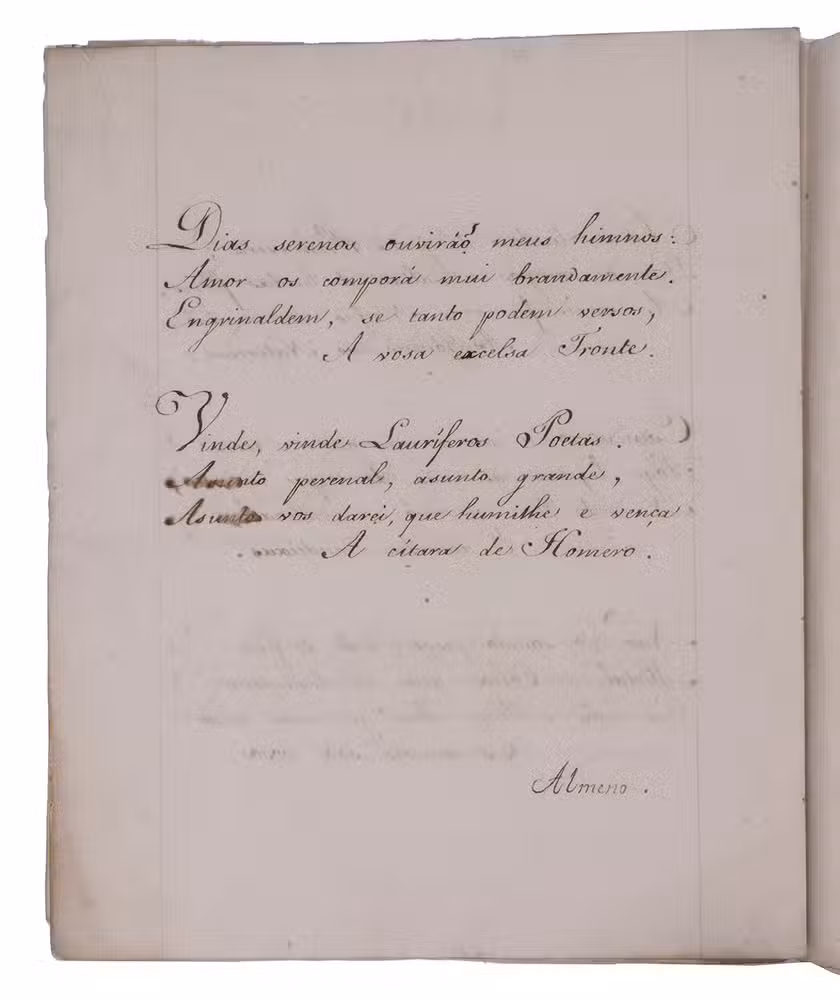 Dias serenos ouviráõ meus himnos:
Amor os comporá mui brandamente.
Engrinaldem, se tanto podem versos,
A vosa excelsa Fronte.
Vinde, vinde Lauríferos Poetas.
Asunto perenal, asunto grande,
Asunto vos darei, que humilhe e vença
A cítara de Homero.
Almeno.